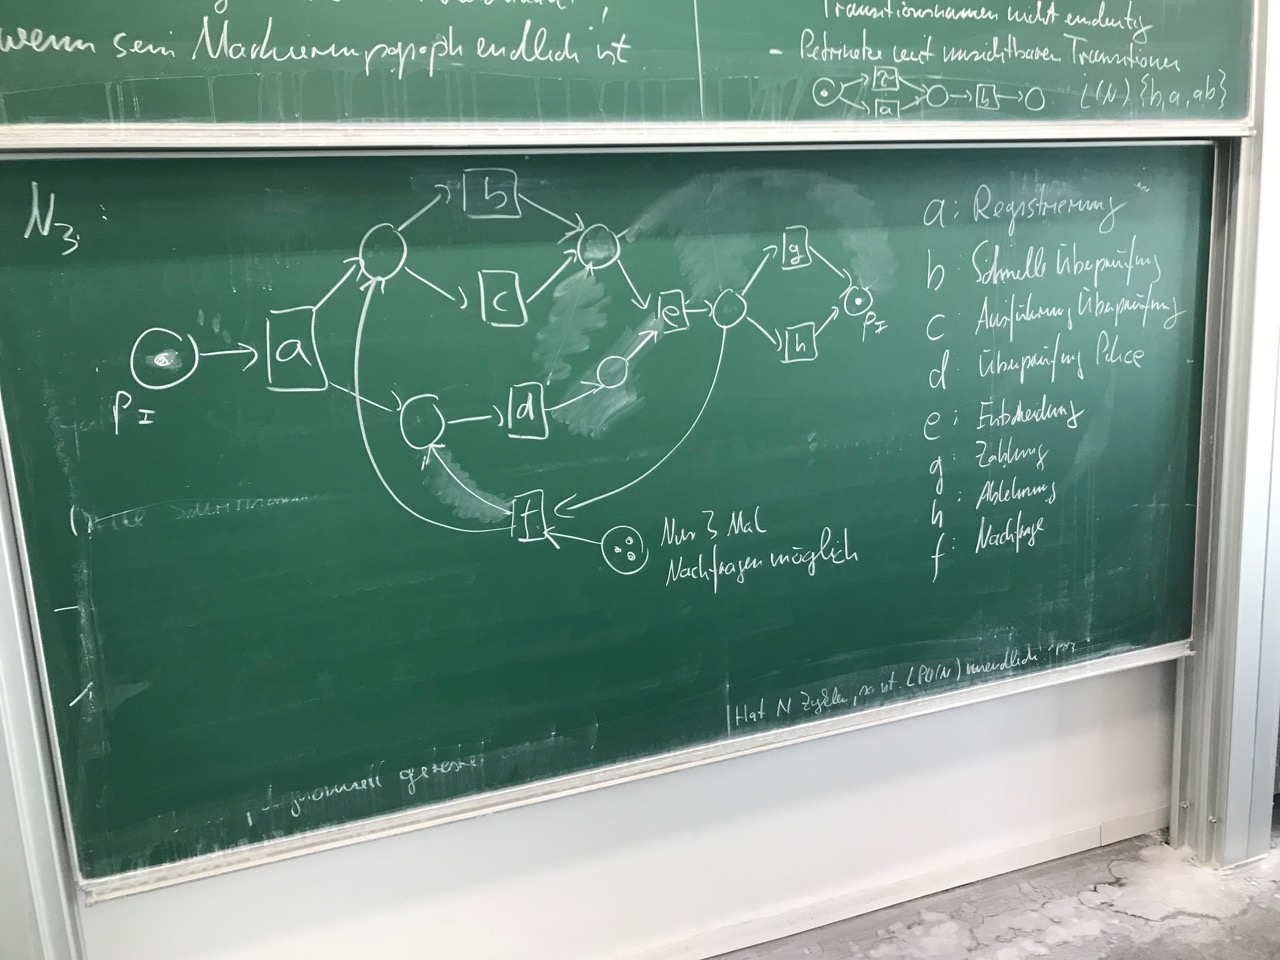 wenn sein Markierungsgraph endlich ist
Transitionsnamen nicht eindeutig
- Petrinetze mit unsichtbaren Transitionen
τ
a
b
L(N) {b, a, ab}
N₃:
b
c
a
d
e
g
h
f
P_I
P_I
Nur 3 Mal
Nachfragen möglich
a: Registrierung
b: Schnelle Überprüfung
c: Ausführung Überprüfung
d: Überprüfung Police
e: Entscheidung
g: Zahlung
h: Ablehnung
f: Nachfrage
Hat N Zyklen, so ist L(PO(N)) unendlich